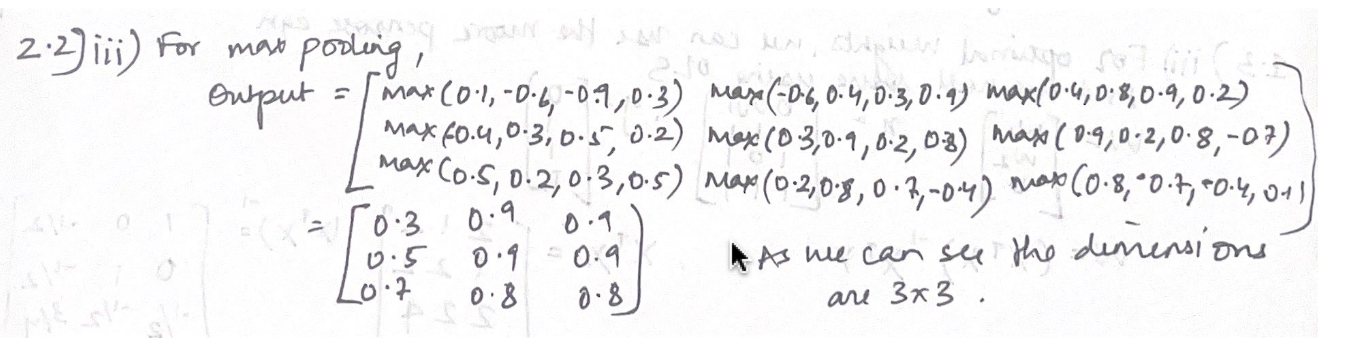 2.2) iii) For max pooling,
Output = [ max(0.1, -0.6, -0.9, 0.3) max(-0.6, 0.4, 0.3, 0.9) max(0.4, 0.8, 0.9, 0.2)
max(0.4, 0.3, 0.5, 0.2) max(0.3, 0.9, 0.2, 0.8) max(0.9, 0.2, 0.8, -0.7)
max(0.5, 0.2, 0.3, 0.5) max(0.2, 0.8, 0.7, -0.4) max(0.8, -0.7, -0.4, 0.1) ]
= [ 0.3 0.9 0.9
0.5 0.9 0.9
0.7 0.8 0.8 ]
As we can see the dimensions
are 3x3 .